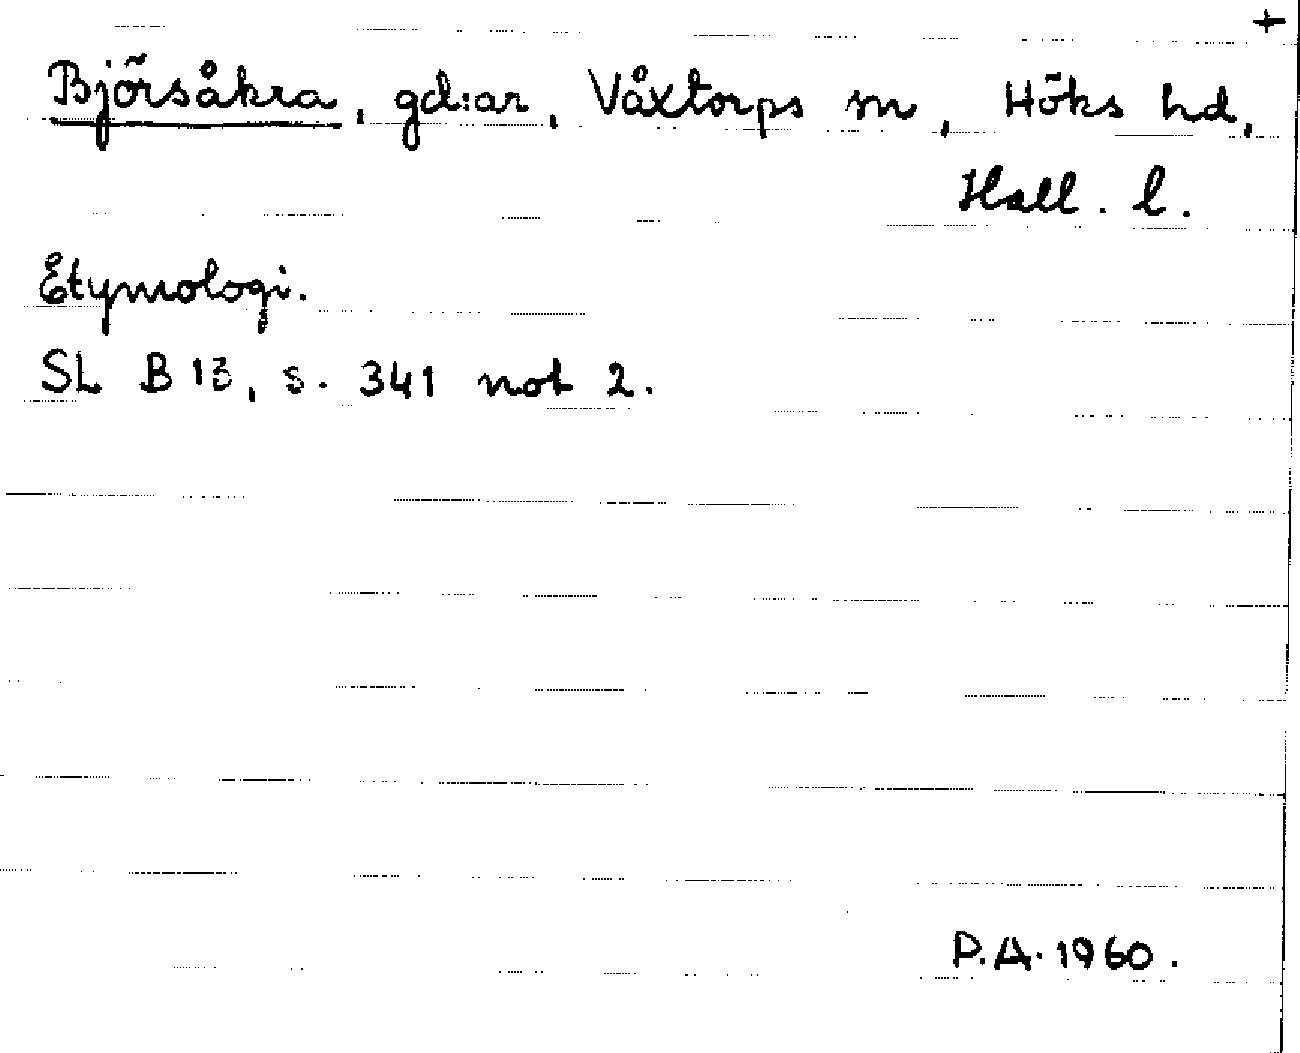 +
Björsåkra, gd:ar, Våxtorps sn, Höks hd,
Hall. l.
Etymologi.
SL B 13, s. 341 not 2.
P.A. 1960.